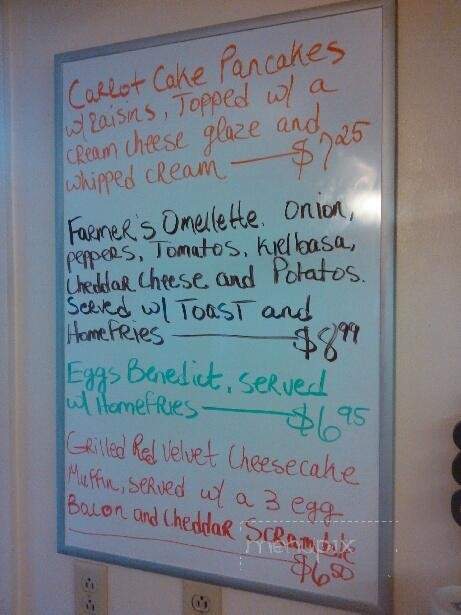 Carrot Cake Pancakes
w/ Raisins, Topped w/ a
Cream cheese glaze and
whipped cream — $7.25
Farmer's Omellette. Onion,
peppers, Tomatos, Kielbasa,
Cheddar Cheese and Potatos.
Served w/ TOAST and
Homefries — $8.99
Eggs Benedict, served
w/ Homefries — $6.95
Grilled Red Velvet Cheesecake
Muffin, served w/ a 3 egg
Bacon and Cheddar Scramble
— $6.50
menupix